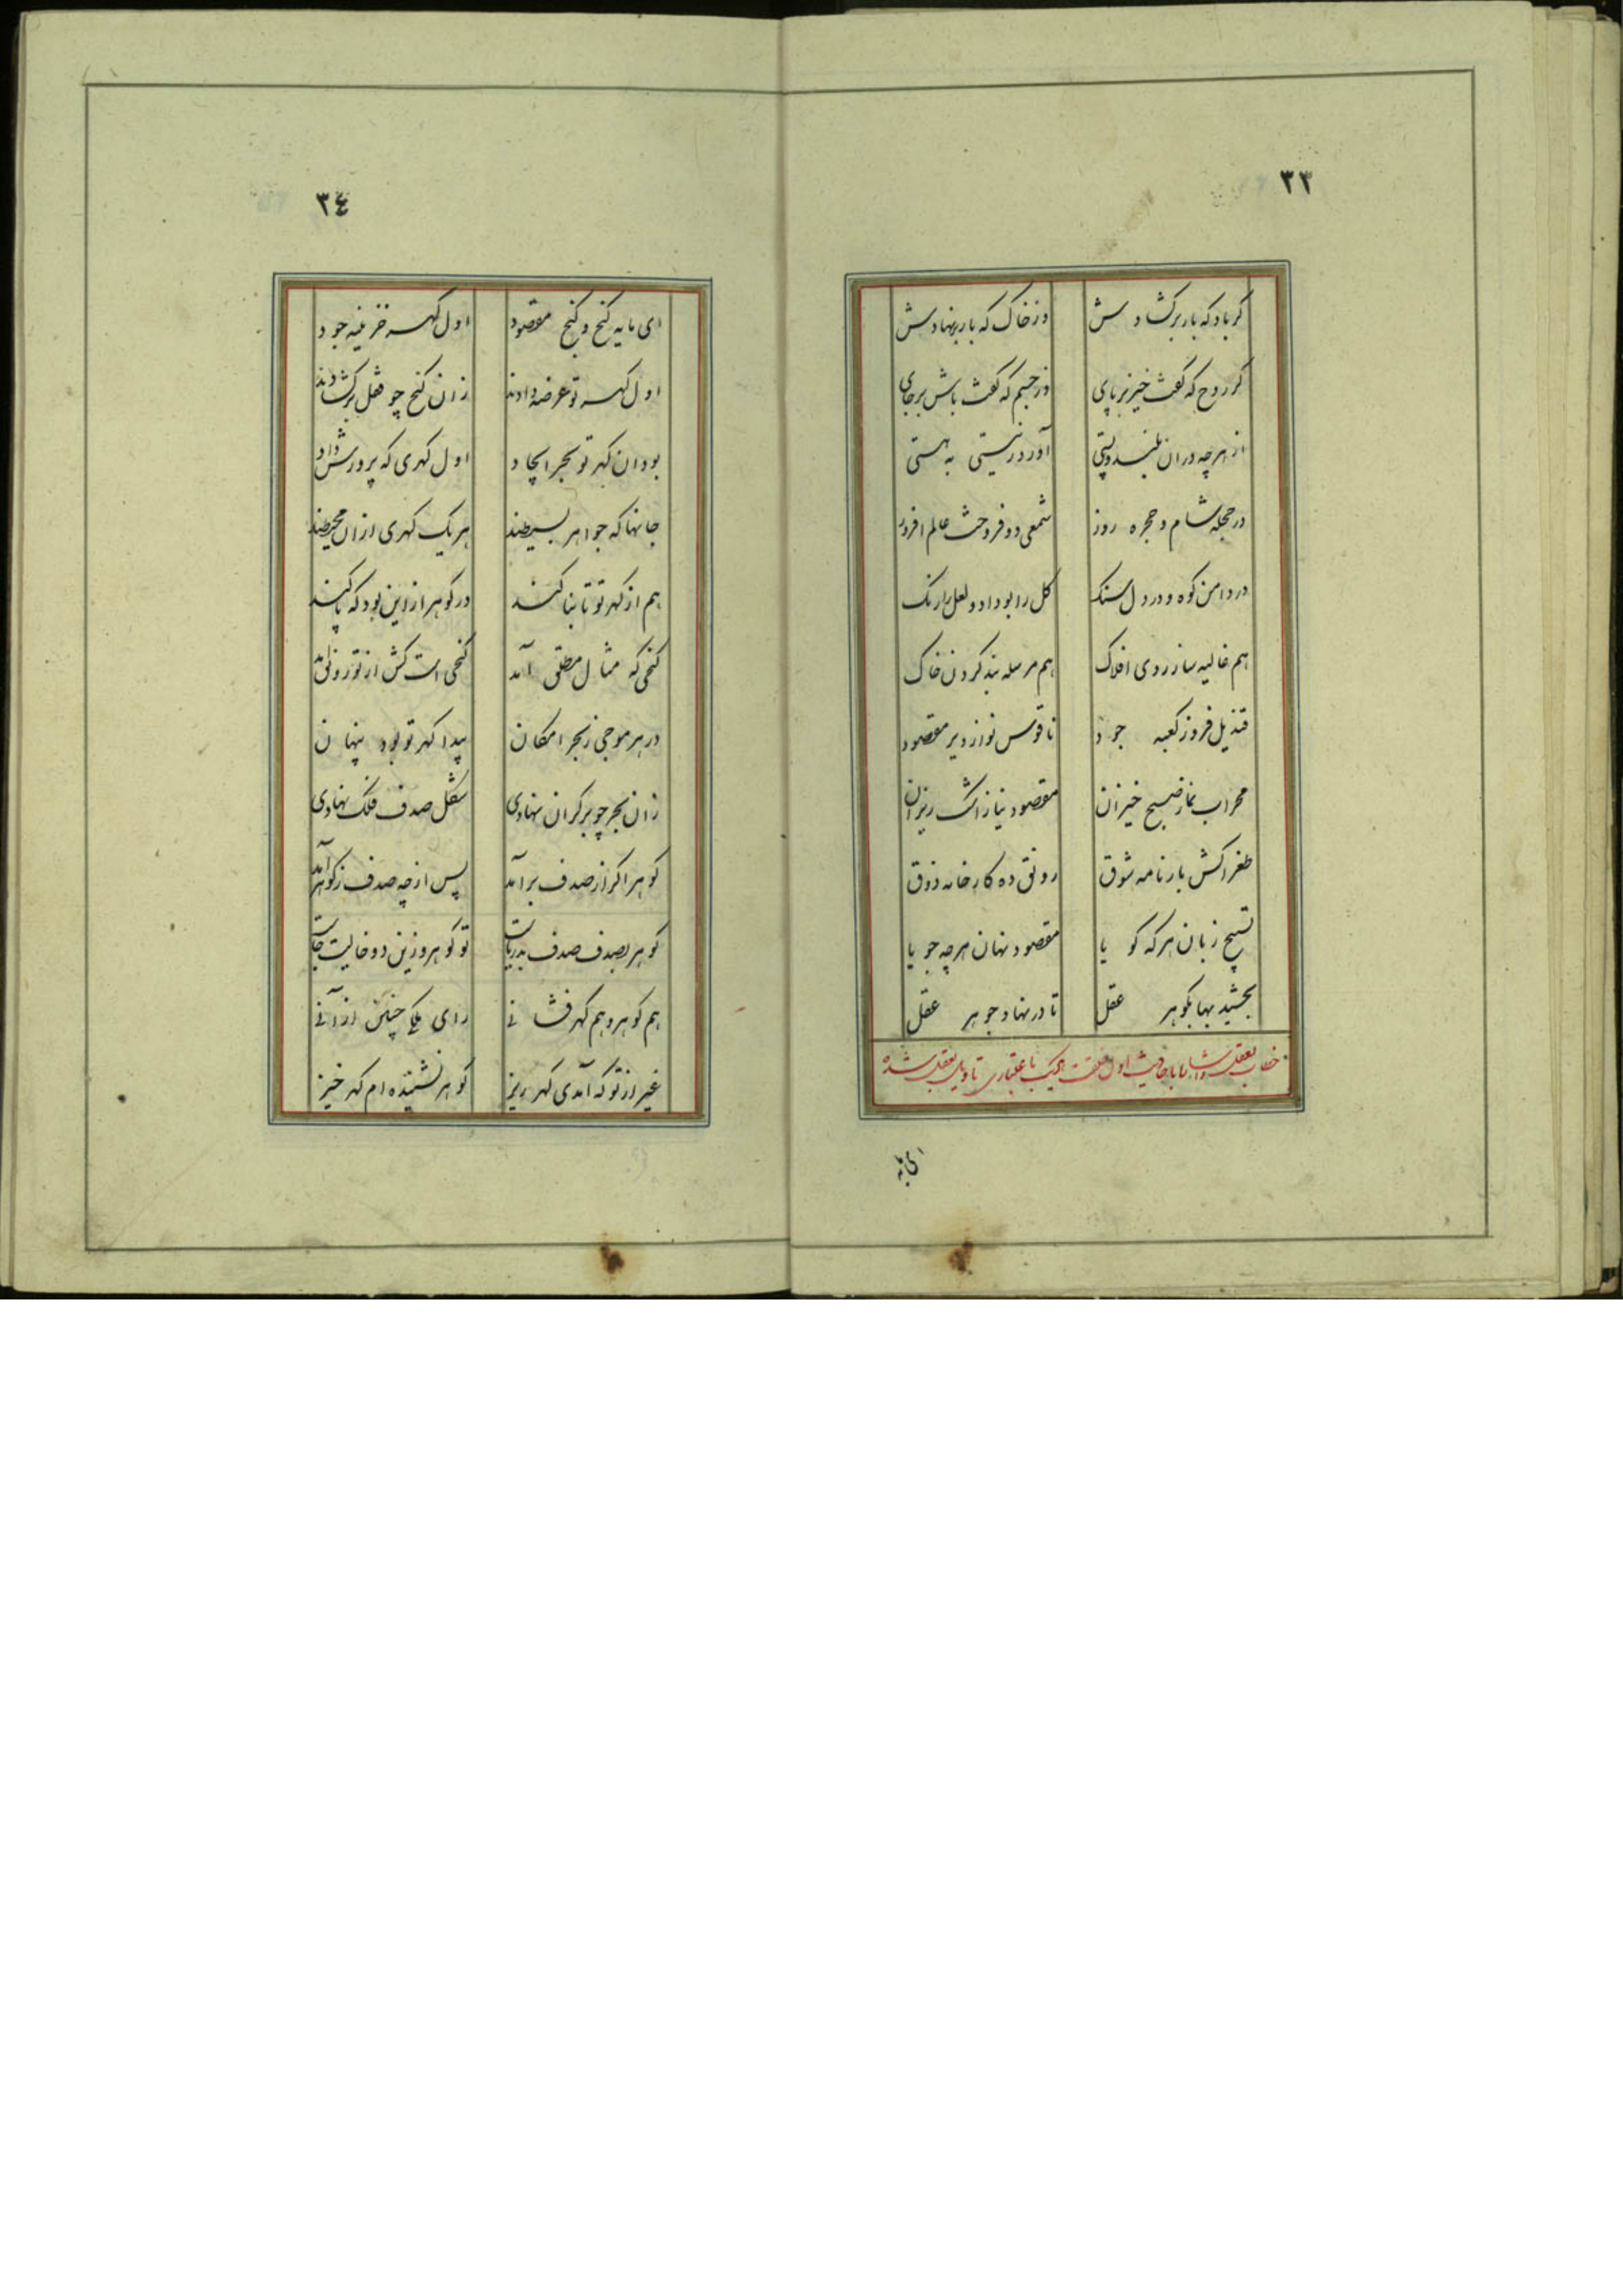 ٣٣
کر باد که بار بر کشادش وز خاک که بار بر نهادش
کر روح که کفت خیز بر پای وز جسم که کفت باش بر جای
از هرچه در ان بلند و پستی آورد ز نیستی به هستی
در حجله شام و حجره روز شمعی دو فروخت عالم افروز
در دامن کوه و در دل سنک کل را بو داد و لعل را رنک
هم غالیه ساز روی افلاک هم مرسله بند کردن خاک
قندیل فروز کعبه جود ناقوس نواز دیر مقصود
محراب نماز صبح خیزان مقصود نیاز اشک ریزان
طغرا کش بارنامه شوق رونق ده کارخانه ذوق
تسبیح زبان هر که کویا مقصود نهان هرچه جویا
بخشید بها بکوهر عقل تا در نهاد جوهر عقل
خطاب بعقل اول باعتباری تاویل بعقل شده
ای مایه
٣٤
ای مایه کنج و کنج مقصود اول کهر خزینه جود
اول کهر تو عرضه دادند زان کنج چو قفل بر کشادند
بود ان کهر تو بحر ایجاد اول کهری که پرورش داد
جانها که جواهر بسیطند هر یک کهری از ان محیطند
هم از کهر تو تابناکند در کوهر از این بود که پاکند
کنجی که مثال مطلق آمد کنجی است کش از تو رونق آمد
در هر موجی ز بحر امکان پیدا کهر تو بود پنهان
زان بحر چو بر کران نهادی شکل صدف فلک نهادی
کوهر اکر از صدف بر آمد پس از چه صدف ز کوهر آمد
کوهر بصدف صدف بدریاست تو کوهر و زین دو خالیت جاست
هم کوهر و هم کهر فشانی رای ملکی چنین از آنی
غیر از تو که آمدی کهر ریز کوهر نشنیده ام کهر خیز